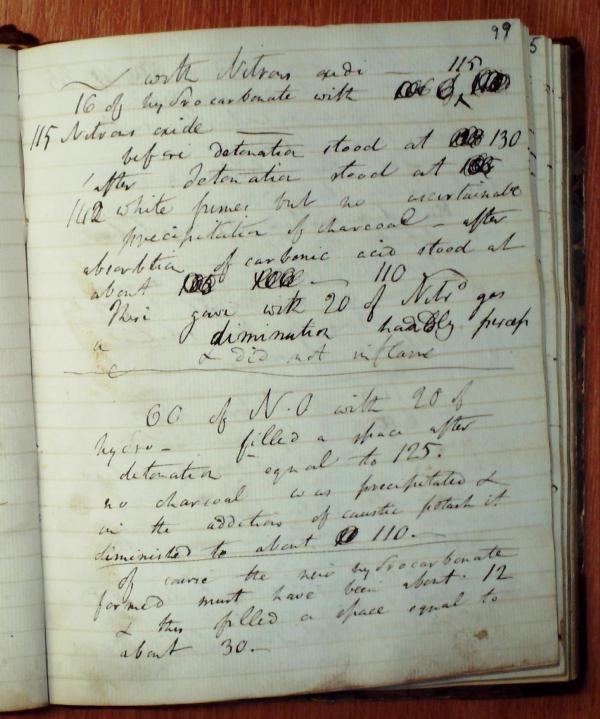 99
5
with Nitrous oxide — 115
16 of hydrocarbonate with
115 Nitrous oxide —
before detonation stood at 130
after detonation stood at
142 white fumes but no ascertainable
precipitation of charcoal — after
absorbtion of carbonic acid stood at
about — 110
These gave with 20 of Nits gas
a diminution hardly percep
& did not inflame
60 of N.O with 20 of
hydro — filled a space after
detonation equal to 125.
no charcoal was precipitated &
on the addition of caustic potash it
diminished to about 110. —
of course the new hydrocarbonate
formed must have been about 12
& this filled a space equal to
about 30. —